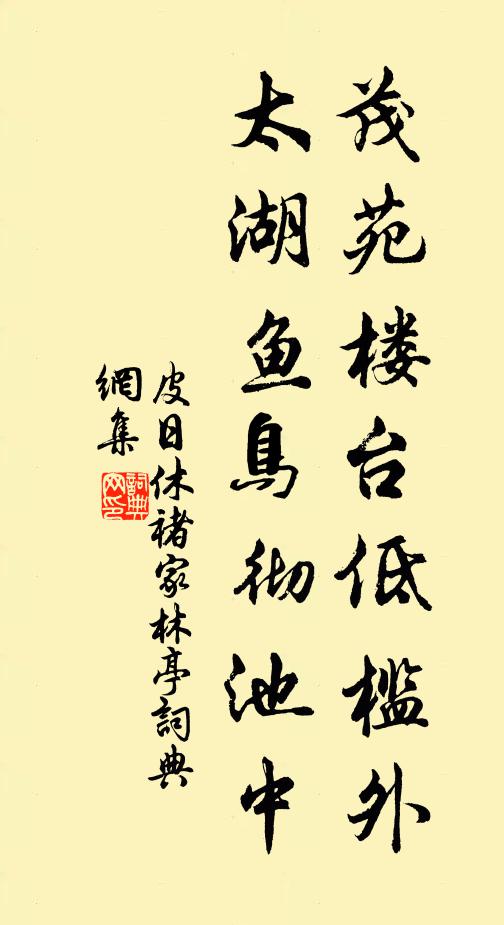 茂苑楼台低槛外
太湖鱼鳥彻池中
皮日休褚家林亭詞典
網集
詞典
网印